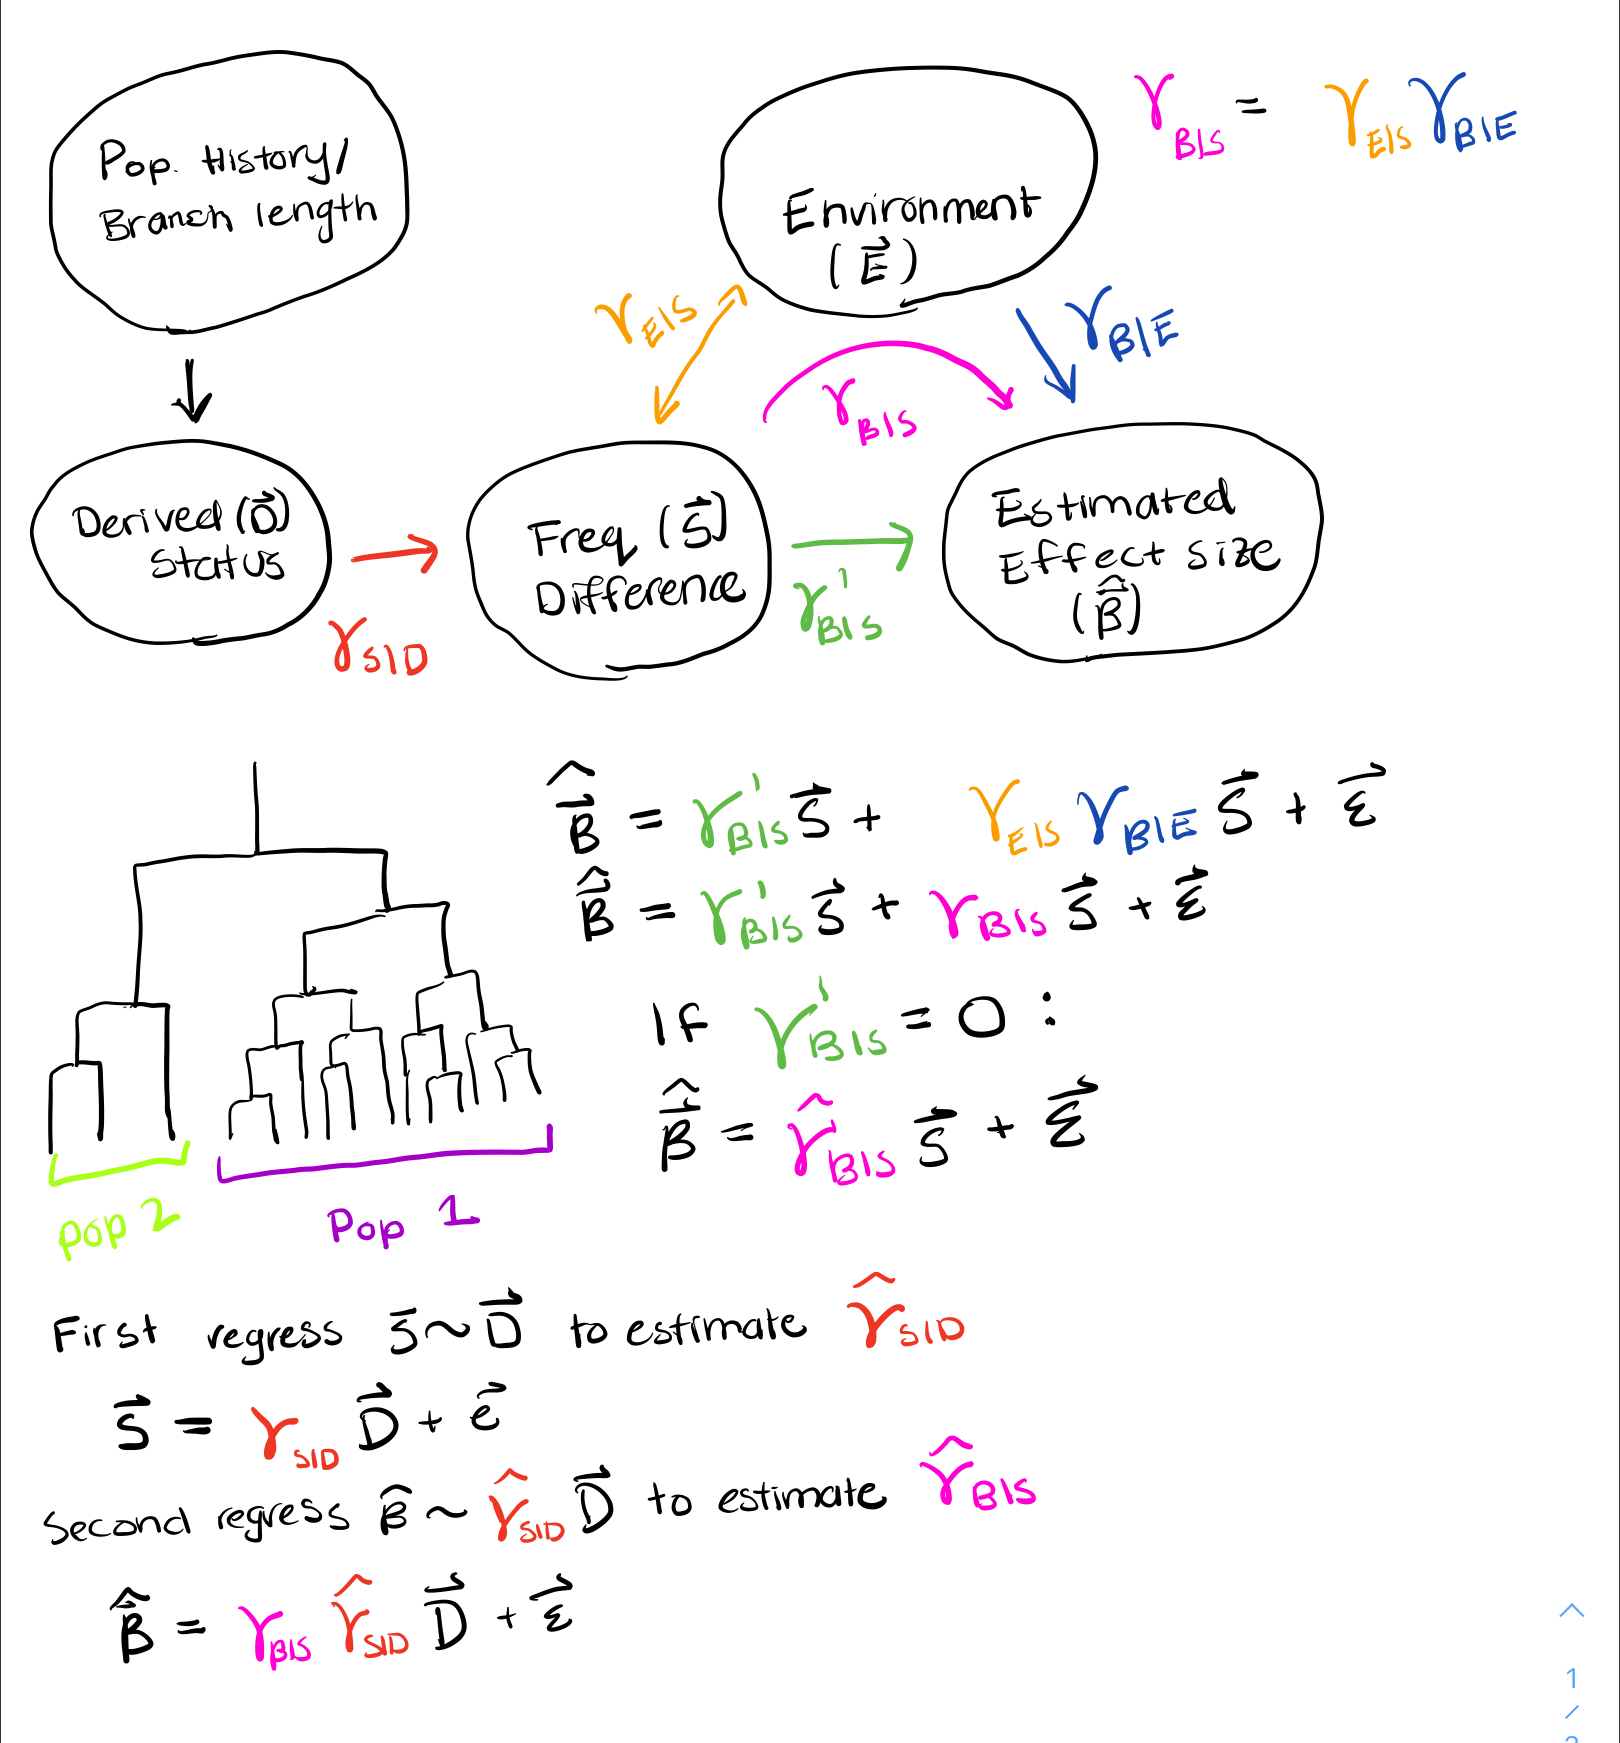 Pop. History/
Branch length
Environment
(E⃗)
γ_B|S = γ_E|S γ_B|E
γ_E|S
γ_B|E
γ_B|S
Derived (D⃗)
Status
γ_S|D
Freq (S⃗)
Difference
γ'_B|S
Estimated
Effect size
(β̂⃗)
β̂⃗ = γ'_B|S S⃗ + γ_E|S γ_B|E S⃗ + ε⃗
β̂⃗ = γ'_B|S S⃗ + γ_B|S S⃗ + ε⃗
If γ'_B|S = 0 :
β̂⃗ = γ̂_B|S S⃗ + ε⃗
Pop 2
Pop 1
First regress S⃗ ~ D⃗ to estimate γ̂_S|D
S⃗ = γ_S|D D⃗ + e⃗
Second regress β̂ ~ γ̂_S|D D⃗ to estimate γ̂_B|S
β̂⃗ = γ_B|S γ̂_S|D D⃗ + ε⃗
1
/